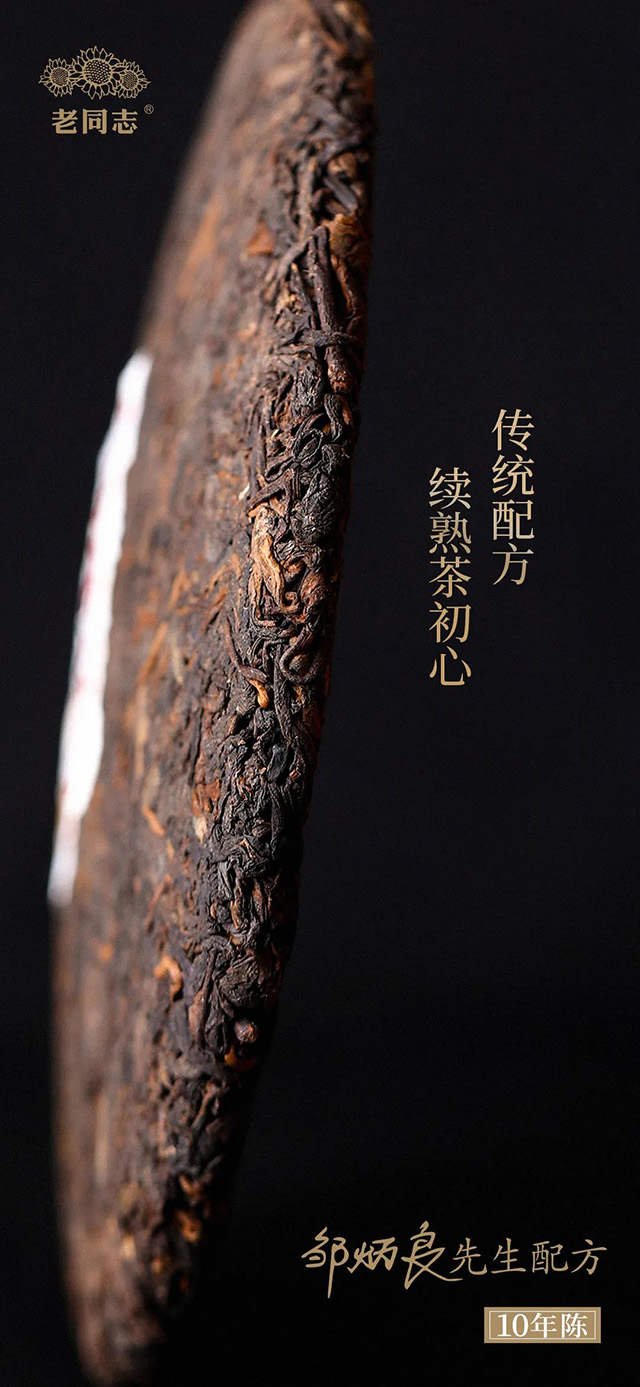 老同志®
传统配方
续熟茶初心
邹炳良先生配方
10年陈